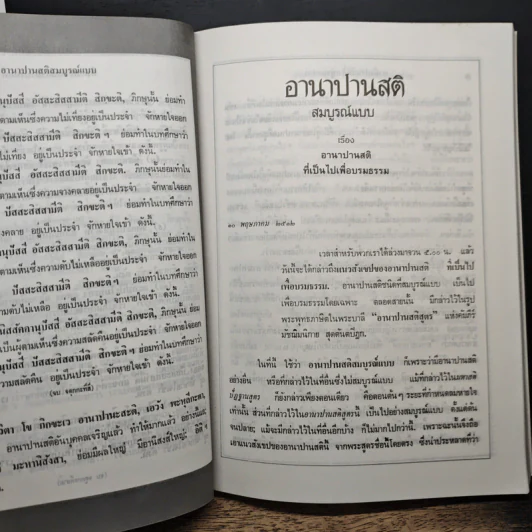 อานาปานสติสมบูรณ์แบบ
นุปัสสี อัสสะสิสสามีติ สิกขะติ, ภิกษุนั้น ย่อมทำ
ตามเห็นซึ่งความไม่เที่ยงอยู่เป็นประจำ จักหายใจออก
ปัสสะสิสสามีติ สิกขะติฯ ย่อมทำในบทศึกษาว่า
ไม่เที่ยง อยู่เป็นประจำ จักหายใจเข้า ดังนี้.
นุปัสสี อัสสะสิสสามีติ สิกขะติ, ภิกษุนั้นย่อมทำใน
ตามเห็นซึ่งความจางคลายอยู่เป็นประจำ จักหายใจออก
ปัสสะสิสสามีติ สิกขะติฯ ย่อมทำในบทศึกษาว่า
คลาย อยู่เป็นประจำ จักหายใจเข้า ดังนี้.
นุปัสสี อัสสะสิสสามีติ สิกขะติ, ภิกษุนั้น ย่อมทำใน
ตามเห็นซึ่งความดับไม่เหลืออยู่เป็นประจำ จักหายใจออก
ปัสสะสิสสามีติ สิกขะติฯ ย่อมทำในบทศึกษาว่า
ดับไม่เหลือ อยู่เป็นประจำ จักหายใจเข้า ดังนี้.
นิสสัคคานุปัสสี อัสสะสิสสามีติ สิกขะติ, ภิกษุนั้น
เป็นผู้ตามเห็นซึ่งความสลัดคืนอยู่เป็นประจำ จักหายใจออก
ปัสสี ปัสสะสิสสามีติ สิกขะติฯ ย่อมทำในบทศึกษาว่า
วามสลัดคืน อยู่เป็นประจำ จักหายใจเข้า ดังนี้.
(จบ จตุกกะที่สี่)
วิตา โข ภิกขะเว อานาปานะสะติ, เอวัง พะหุลีกะตา,
อานาปานสติอันบุคคลเจริญแล้ว ทำให้มากแล้ว อย่างนี้แล
มะหานิสังสา, ย่อมมีผลใหญ่ มีอานิสงส์ใหญ่. อิติ ฯ
อานาปานสติ
สมบูรณ์แบบ
เรื่อง
อานาปานสติ
ที่เป็นไปเพื่อบรมธรรม
๑๐ พฤษภาคม ๒๕๓๒
เวลาสำหรับพวกเราได้ล่วงมาจวน ๕.๐๐ น. แล้ว
วันนี้จะได้กล่าวถึงแนวสังเขปของอานาปานสติ ที่เป็นไป
เพื่อบรมธรรม. อานาปานสติชนิดที่สมบูรณ์แบบ เป็นไป
เพื่อบรมธรรมโดยเฉพาะ ตลอดสายนั้น มีกล่าวไว้ในรูป
พระพุทธภาษิตในพระบาลี “อานาปานสติสูตร” แห่งคัมภีร์
มัชฌิมนิกาย อุปริปัณณาสก์.
ในที่นี้ ใช้ว่า อานาปานสติสมบูรณ์แบบ ก็เพราะว่ามีอานาปานสติ
อย่างอื่น หรือที่กล่าวไว้ในที่อื่นซึ่งไม่สมบูรณ์แบบ แม้ที่กล่าวไว้ใน
ก็กล่าวเพียงตอนเดียว คือตอนต้นๆ ระยะที่กำหนดลมหายใจ
เท่านั้น ส่วนที่กล่าวไว้ในอานาปานสติสูตรนี้ เป็นไปอย่างสมบูรณ์แบบ ตั้งแต่ต้น
จนปลาย; แม้จะมีกล่าวไว้ในที่อื่นอีกบ้าง ก็ไม่มากไปกว่านี้. เพราะฉะนั้นจึงถือ
เอาแนวสังเขปของอานาปานสตินี้ จากพระสูตรชื่อนี้โดยตรง ซึ่งน่าประหลาดที่ว่า